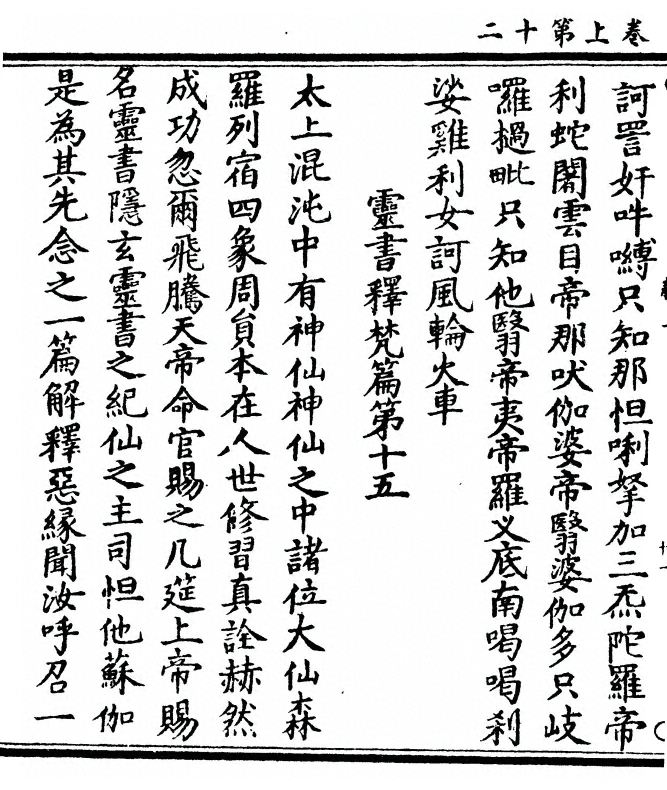 卷上第十二
訶詈奸吽嚩只知那怛唎拏加三炁陀羅帝
利蛇闍雲目帝那吠伽婆帝翳婆伽多只岐
囉撾毗只知他翳帝夷帝羅义底南喝喝刹
娑雞利女訶風輪火車
靈書釋梵篇第十五
太上混沌中有神仙神仙之中諸位大仙森
羅列宿四象周負本在人世修習真詮赫然
成功忽爾飛騰天帝命官賜之几筵上帝賜
名靈書隱玄靈書之紀仙之主司怛他蘇伽
是為其先念之一篇解釋惡緣聞汝呼召一